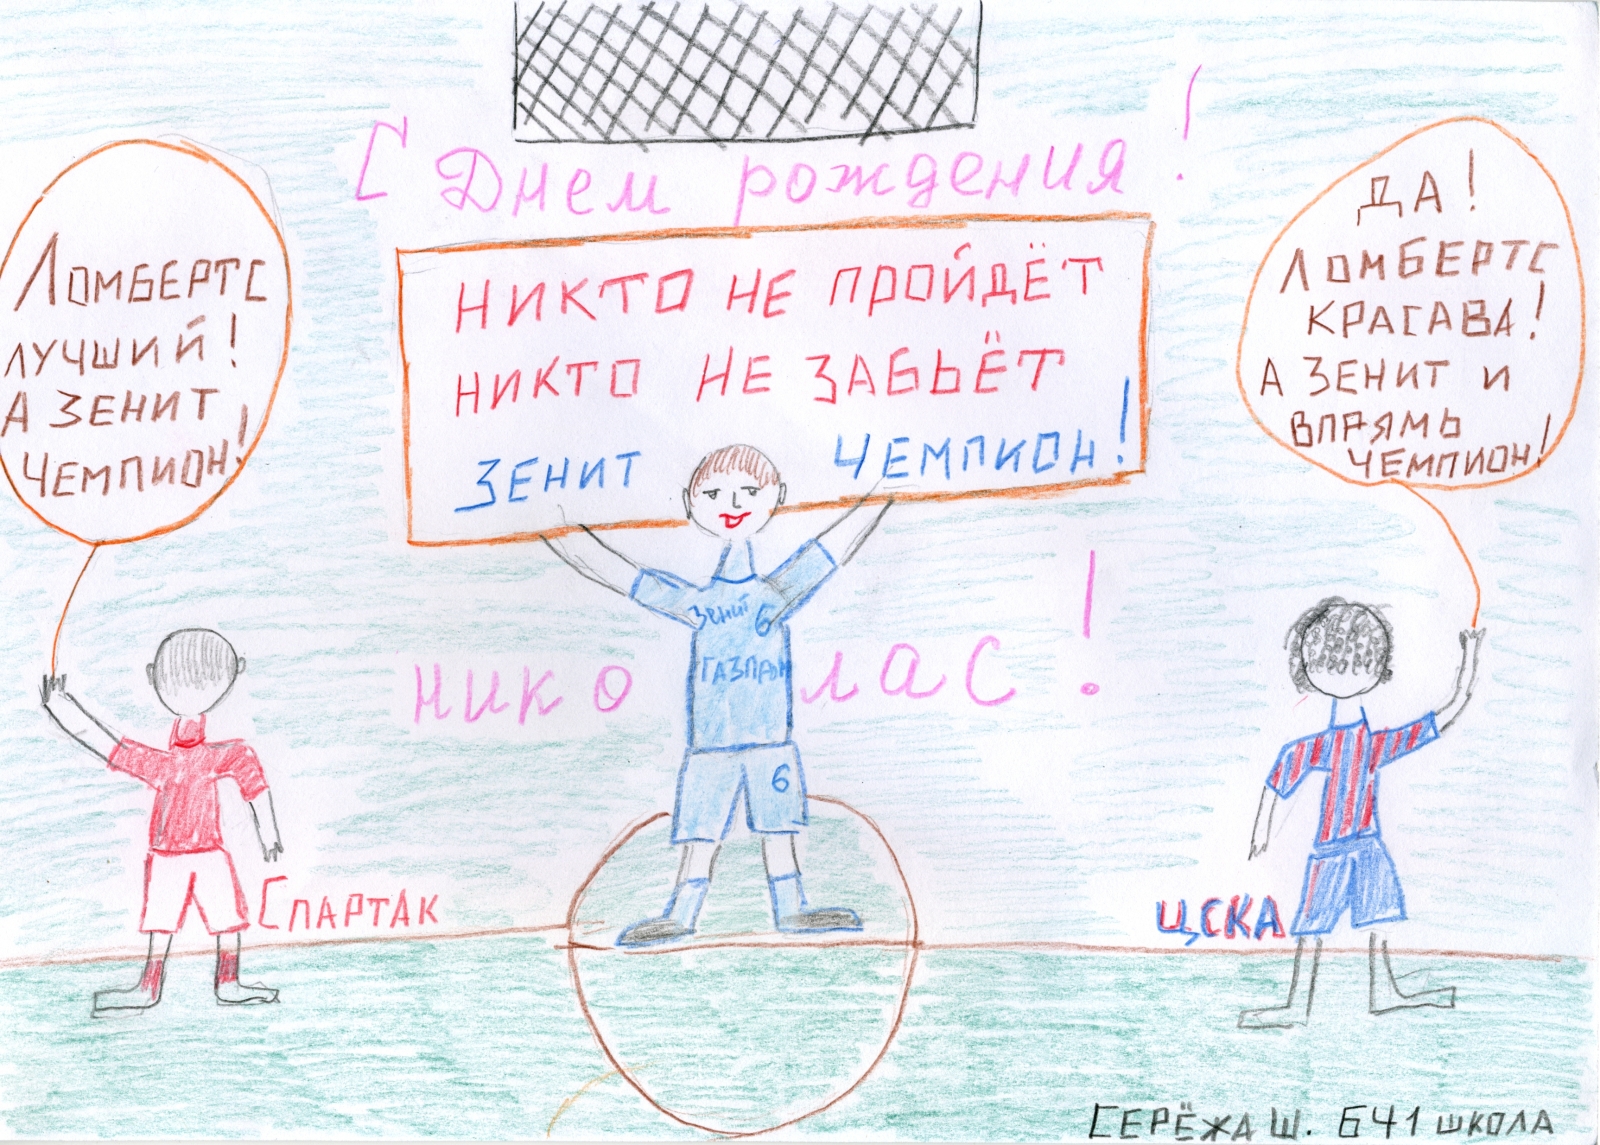 С Днем рождения!
Ломбертс
лучший!
А Зенит
Чемпион!
НИКТО НЕ ПРОЙДЁТ
НИКТО НЕ ЗАБЬЁТ
ЗЕНИТ ЧЕМПИОН!
ДА!
Ломбертс
КРАСАВА!
А ЗЕНИТ И
ВПРЯМЬ
ЧЕМПИОН!
Зенит 6
ГАЗПРОМ
Николас!
6
Спартак
ЦСКА
СЕРЁЖА Ш. 641 ШКОЛА